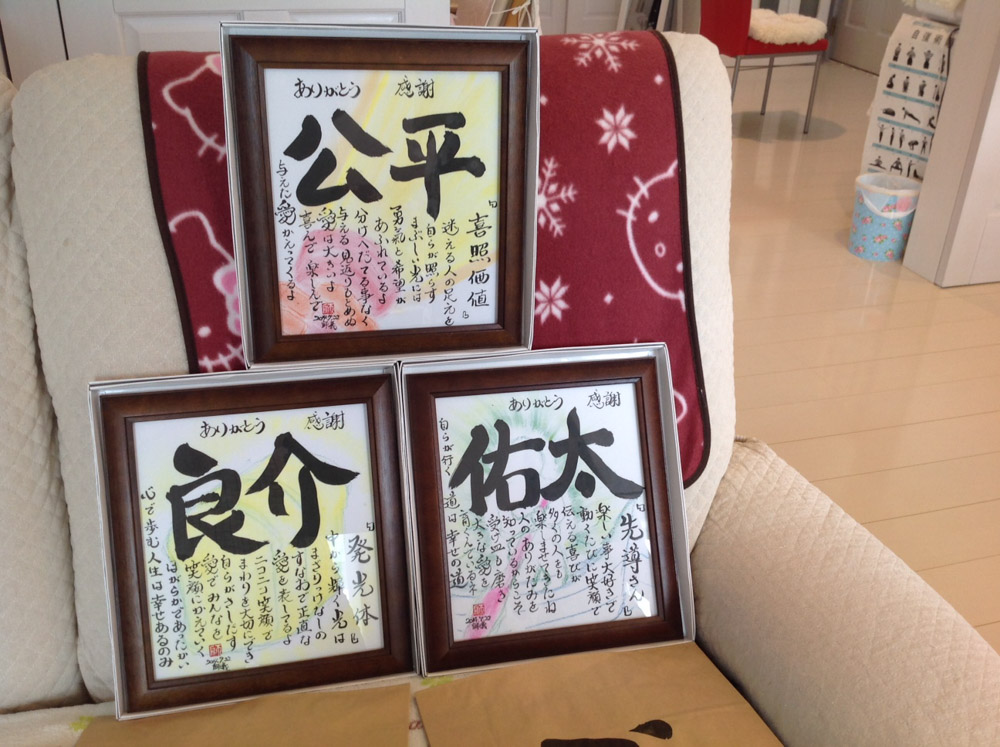 ありがとう 感謝
公平
『喜照価値』
迷える人の足元を
自らが照らす
まぶしい光には
勇気と希望が
あふれているよ
分けへだてる事なく
与える見返りもとめぬ
愛は大きいよ
喜んで楽しんで
与えた愛かえってくるよ
ありがとう 感謝
良介
『発光体』
輝く光は
まざりっけなしの
すなおで正直な
愛を表してるよ
ニコニコ笑顔で
まわりを大切にでき
自らがさしだす
愛でみんなを
笑顔にかえていく
ほがらかであったかい
心で歩む人生は幸せあるのみ
ありがとう 感謝
佑太
『先導さん』
楽しい事大好きで
動くたびに笑顔で
伝える喜びが
多くの人をも
楽しませてきたね
人のありがたみを
知っているからこそ
受け皿も
大きな愛を
育くんでいるネ
自らが行く道は幸せの道